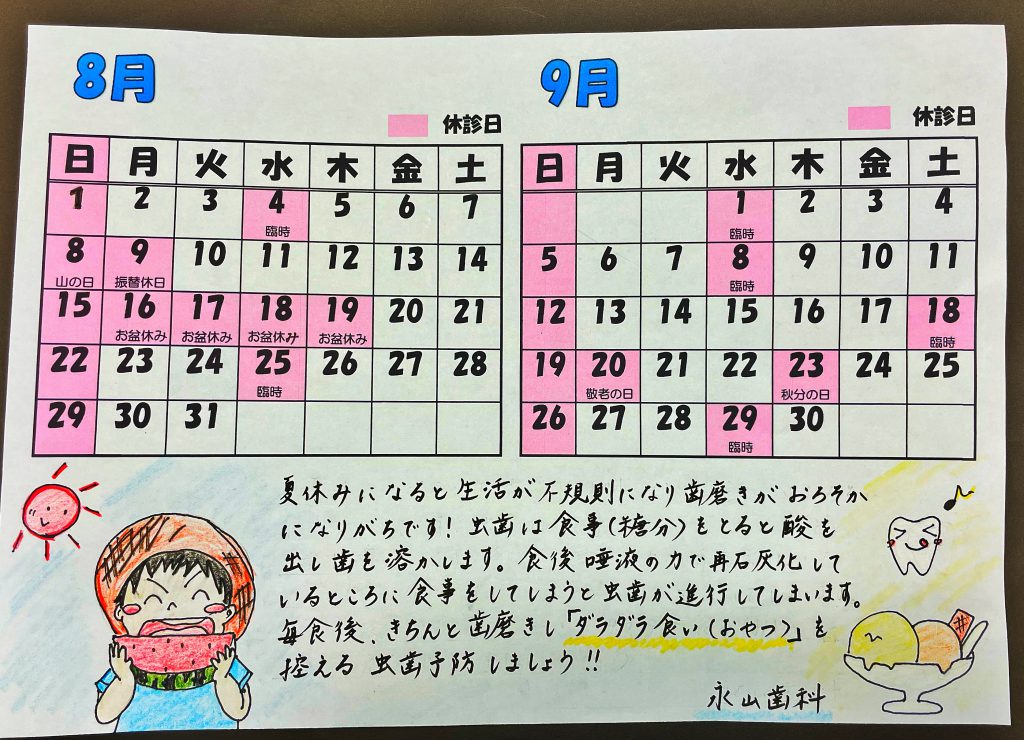 8月
休診日
日 月 火 水 木 金 土
1 2 3 4 5 6 7
臨時
8 9 10 11 12 13 14
山の日 振替休日
15 16 17 18 19 20 21
お盆休み お盆休み お盆休み お盆休み
22 23 24 25 26 27 28
臨時
29 30 31
9月
休診日
日 月 火 水 木 金 土
1 2 3 4
臨時
5 6 7 8 9 10 11
臨時
12 13 14 15 16 17 18
臨時
19 20 21 22 23 24 25
敬老の日 秋分の日
26 27 28 29 30
臨時
夏休みになると生活が不規則になり歯磨きがおろそか
になりがちです! 虫歯は食事(糖分)をとると酸を
出し歯を溶かします。食後唾液の力で再石灰化して
いるところに食事をしてしまうと虫歯が進行してしまいます。
毎食後、きちんと歯磨きし「ダラダラ食い(おやつ)」を
控える虫歯予防しましょう!!
永山歯科